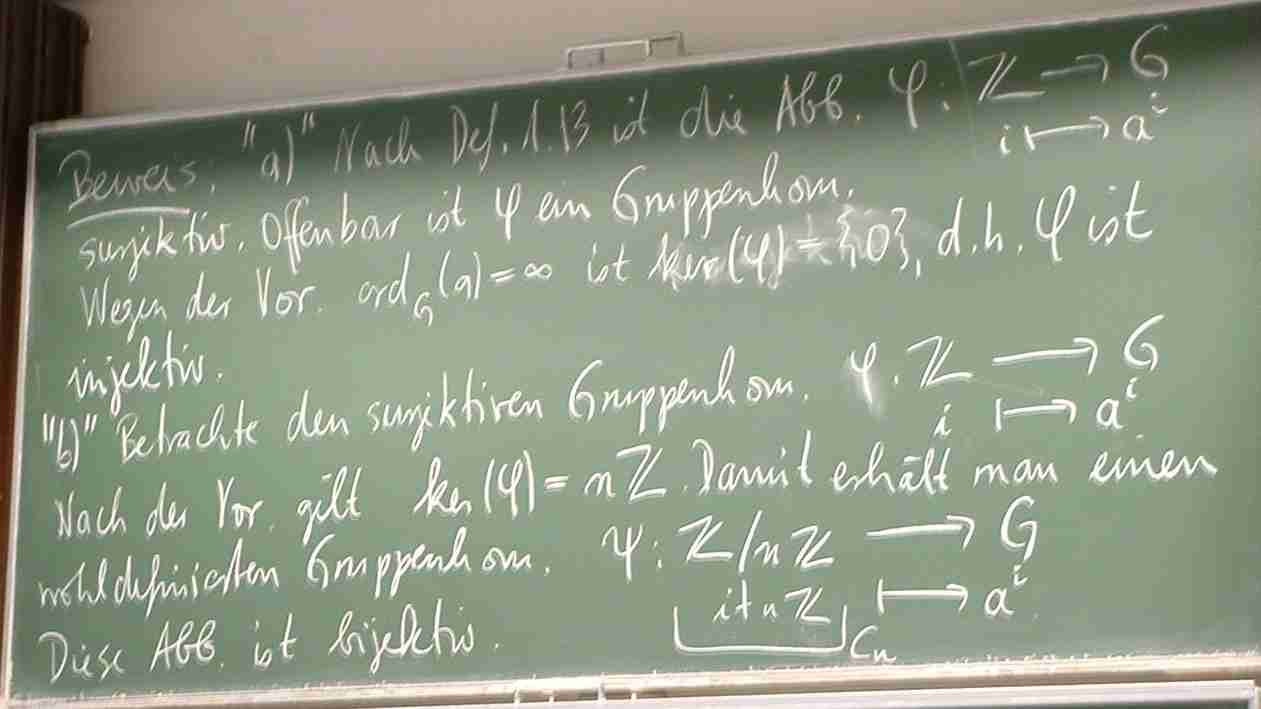 Beweis: "a)" Nach Def. 1.13 ist die Abb. φ: ℤ → G
i ↦ aⁱ
surjektiv. Offenbar ist φ ein Gruppenhom.
Wegen der Vor. ord_G(a) = ∞ ist ker(φ) = {0}, d.h. φ ist
injektiv.
"b)" Betrachte den surjektiven Gruppenhom. φ: ℤ → G
i ↦ aⁱ
Nach der Vor. gilt ker(φ) = nℤ. Damit erhält man einen
wohldefinierten Gruppenhom. ψ: ℤ/nℤ → G
i+nℤ ↦ aⁱ.
Diese Abb. ist bijektiv. C_n